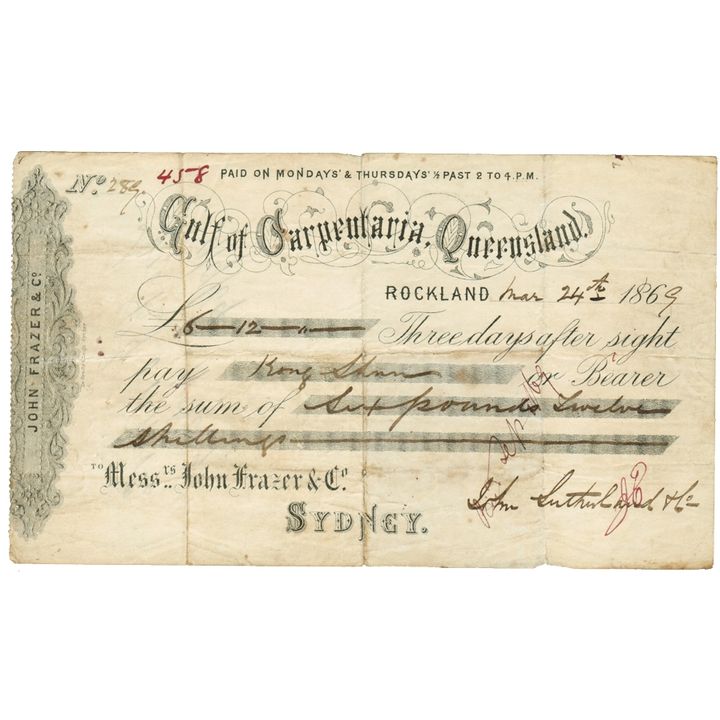 No 289. 458 PAID ON MONDAYS' & THURSDAYS' ½ PAST 2 TO 4.P.M.
Gulf of Carpentaria, Queensland.
ROCKLAND Mar 24th 1869
£ 6 - 12 - " - Three days after sight
pay Kong Shun or Bearer
the sum of Six pounds Twelve
shillings
TO Messrs. John Frazer & Co.
SYDNEY.
John Sutherland & Co
JOHN FRAZER & Co